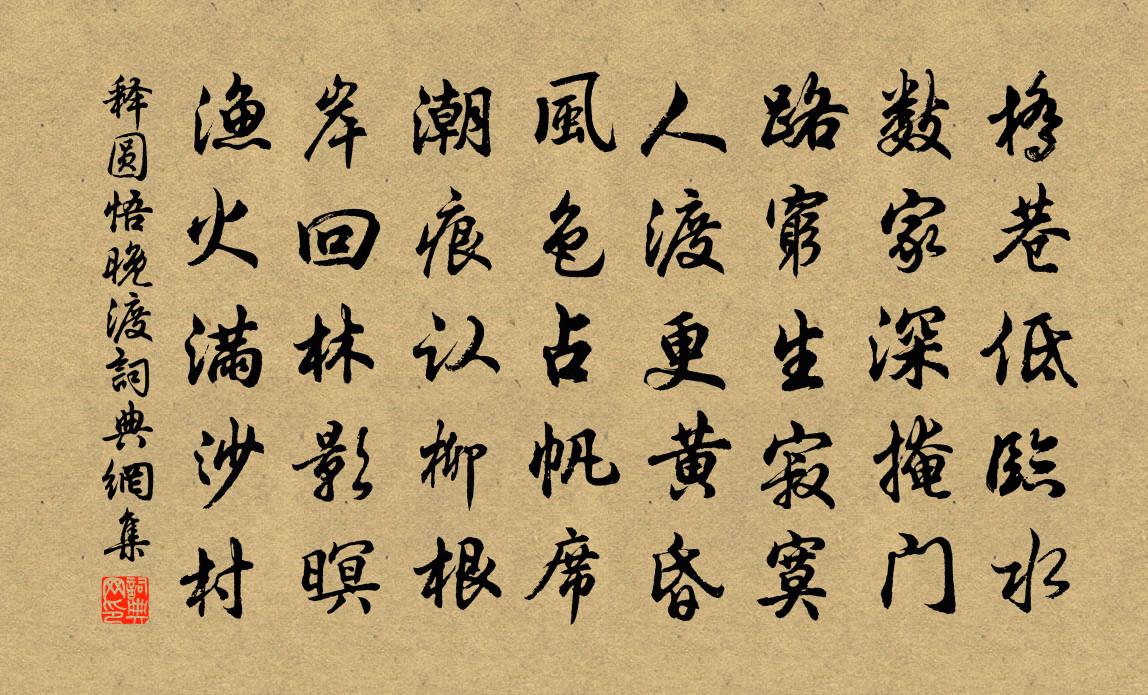 橋巷低臨水
數家深掩門
路窮生寂寞
人渡更黄昏
風色占帆席
潮痕认柳根
岸回林影暝
漁火滿沙村
释圓悟晚渡詞典網集
詞典网印